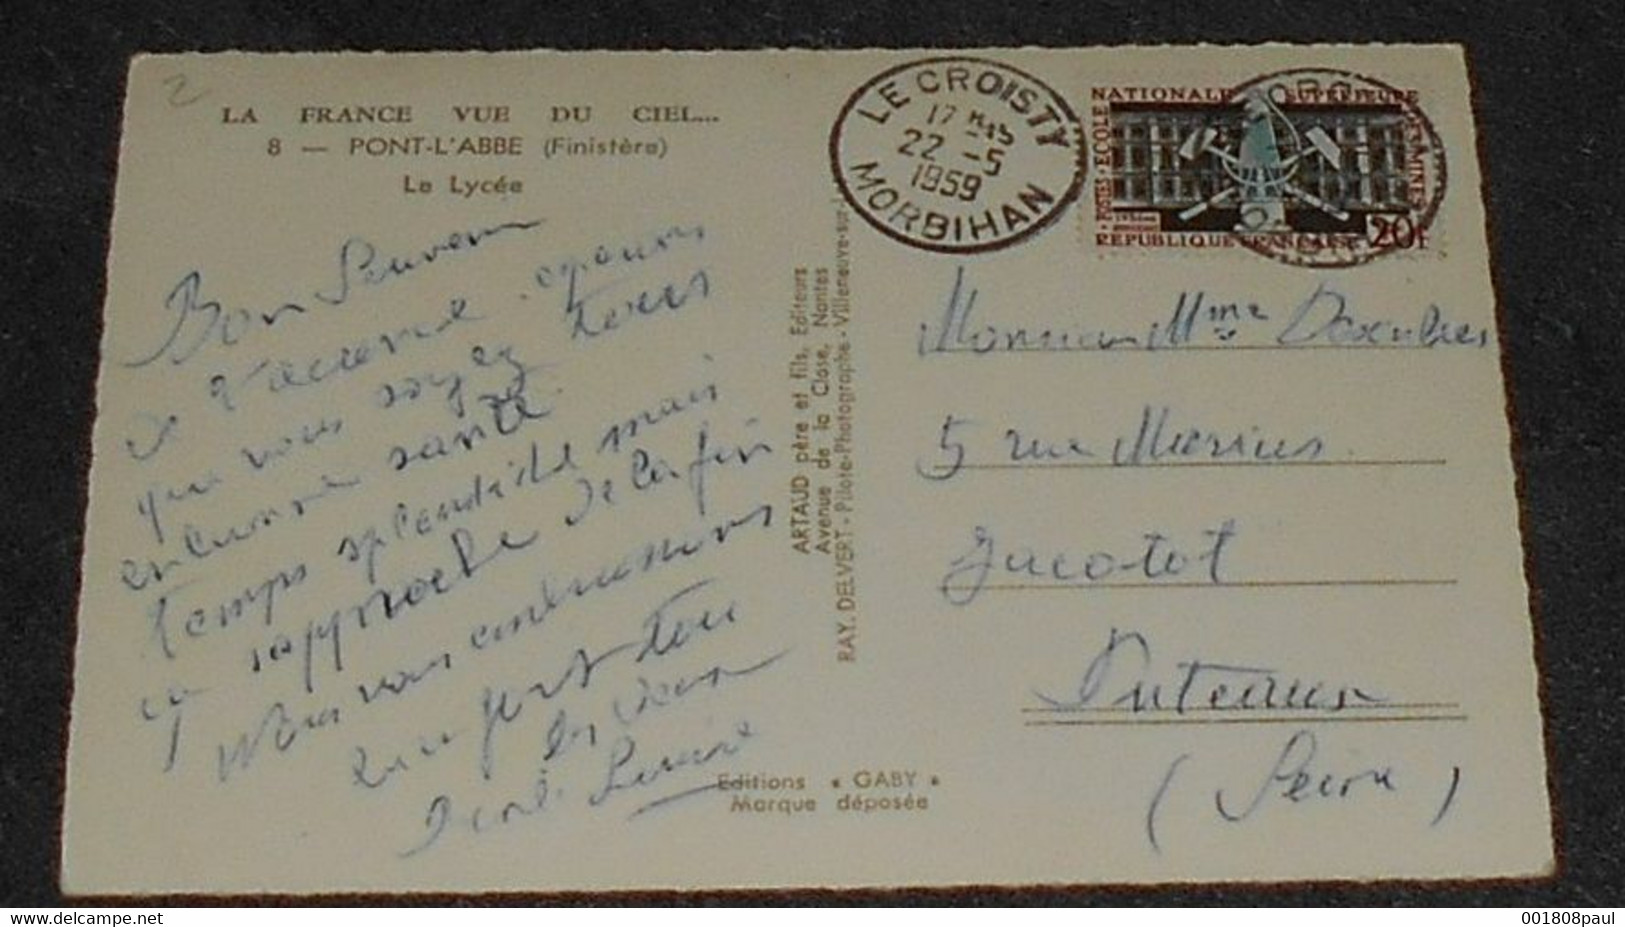 2
LA FRANCE VUE DU CIEL...
8 — PONT-L'ABBE (Finistère)
Le Lycée
LE CROISTY
17 H 45
22 - 5
1959
MORBIHAN
POSTES · ECOLE NATIONALE SUPERIEURE DES MINES
REPUBLIQUE FRANCAISE 20F
Bon Souvenir
que vous soyez tous
santé
temps splendide mais
ça approche de la fin
Nous vous embrassons
bien fort tou
ARTAUD père et fils, Editeurs
Avenue de la Close, Nantes
RAY. DELVERT - Pilote-Photographe - Villeneuve-sur-L
Editions « GABY »
Marque déposée
Monsieur Mme
5 rue Marius
Jacotot
Puteaux
(Seine)
www.delcampe.net
001808paul